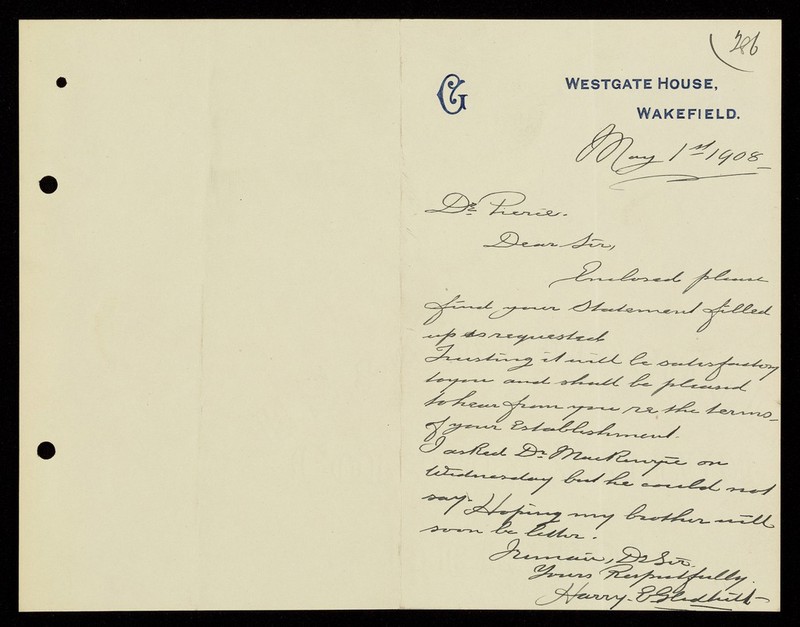 286
CG
WESTGATE HOUSE,
WAKEFIELD.
May 1st 1908
Dr. Pierie.
Dear Sir,
Enclosed please
find your Statement filled
up as requested
Trusting it will be satisfactory
to you and shall be pleased
to hear from you re, the terms
of your Establishment.
I asked Dr. MacKenzie on
Wednesday but he could not
say. Hoping my brother will
soon be better.
I remain, Dr Sir.
Yours Respectfully.
Harry. E Gledhill